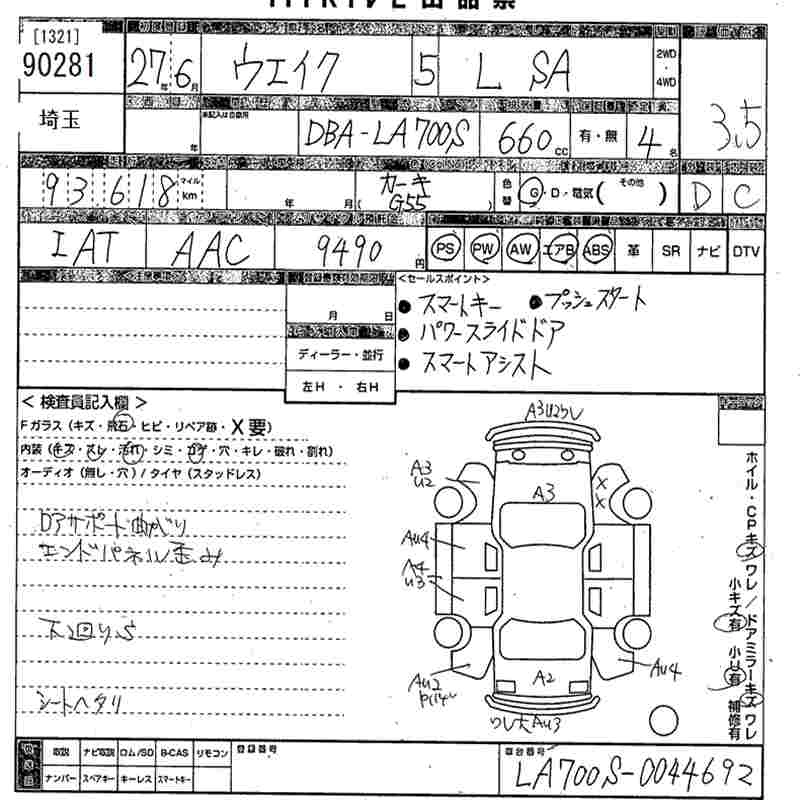 [1321]
90281
27年 6月 ウエイク 5 L SA 2WD・4WD 3.5
埼玉 年 DBA-LA700S 660cc 有・無 4名
93,618 マイル km 年 月( カーキ G55 ) 色替 G・D・電気( その他 ) D C
IAT AAC 9490円 PS PW AW エアB ABS 革 SR ナビ DTV
月 日
ディーラー・並行
左H ・ 右H
<セールスポイント>
●スマートキー ●プッシュスタート
●パワースライドドア
●スマートアシスト
<検査員記入欄>
Fガラス(キズ・飛石・ヒビ・リペア跡・X要)
内装(キズ・スレ・汚れ・シミ・コゲ・穴・キレ・破れ・割れ)
オーディオ(無し・穴)/タイヤ(スタッドレス)
エンドパネル歪み
下回りS
シートヘタリ
A3
U2
A3
X
X
AU4
A4
U3
AU2
A2
AU4
ワレ大AU3
ホイル・CPキズワレ/ドアミラーキズワレ
小キズ有 小U有 補修有
取説 ナビ取説 ロム/SD B-CAS リモコン 登録番号 車台番号
ナンバー スペアキー キーレス スマートキー LA700S-0044692